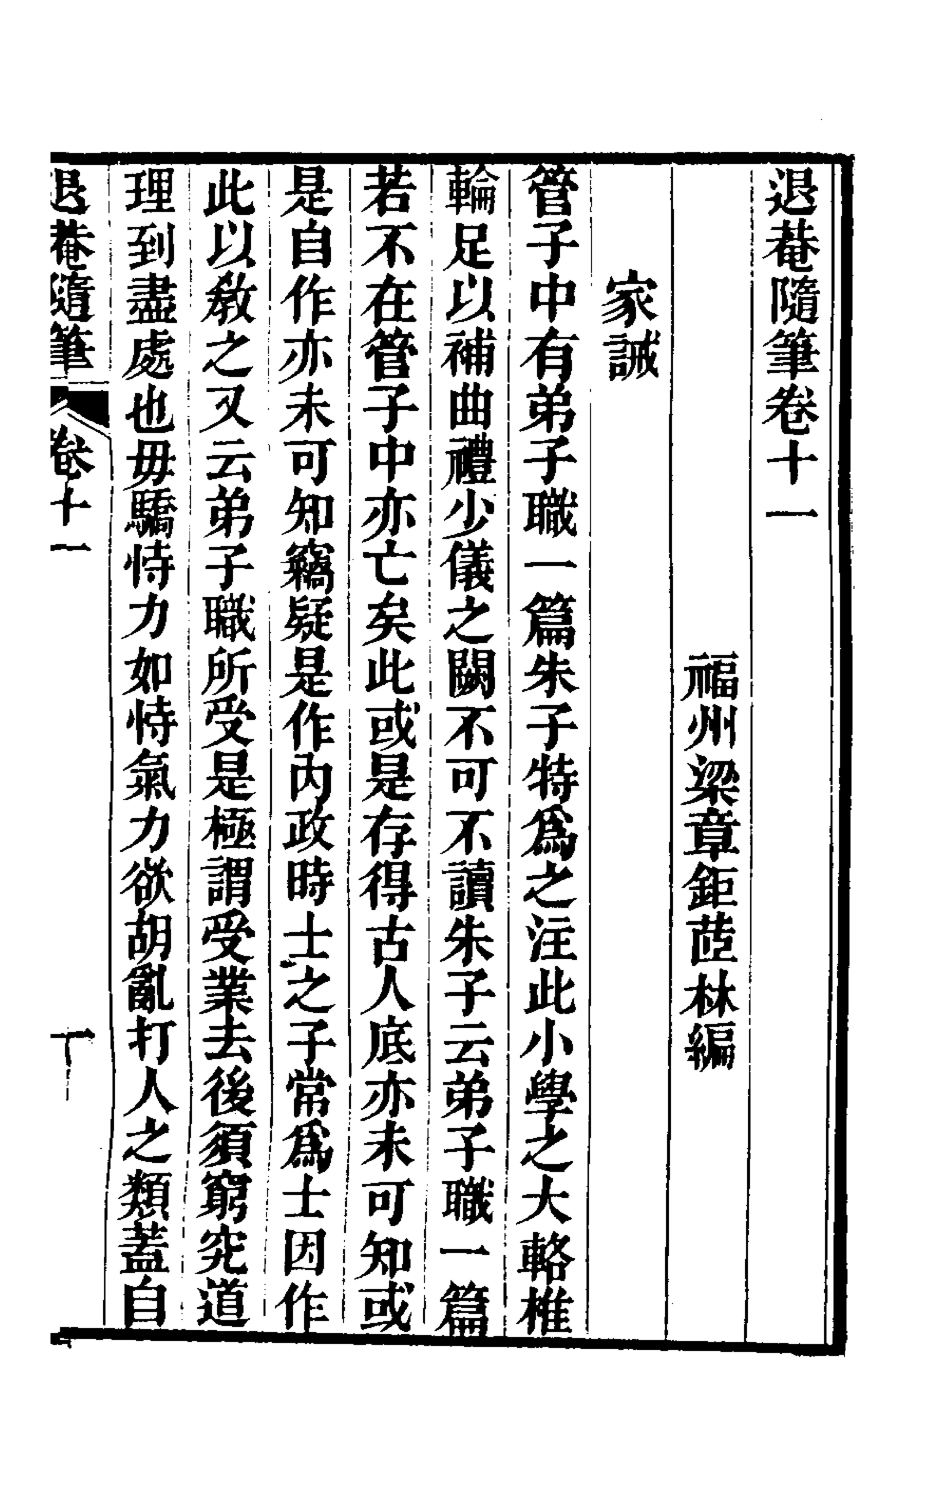 退菴隨筆卷十一
福州梁章鉅茝林編
家誡
管子中有弟子職一篇朱子特爲之注此小學之大輅椎
輪足以補曲禮少儀之闕不可不讀朱子云弟子職一篇
若不在管子中亦亡矣此或是存得古人底亦未可知或
是自作亦未可知竊疑是作內政時士之子常爲士因作
此以敎之又云弟子職所受是極謂受業去後須窮究道
理到盡處也毋驕恃力如恃氣力欲胡亂打人之類蓋自
退菴隨筆
卷十一
一